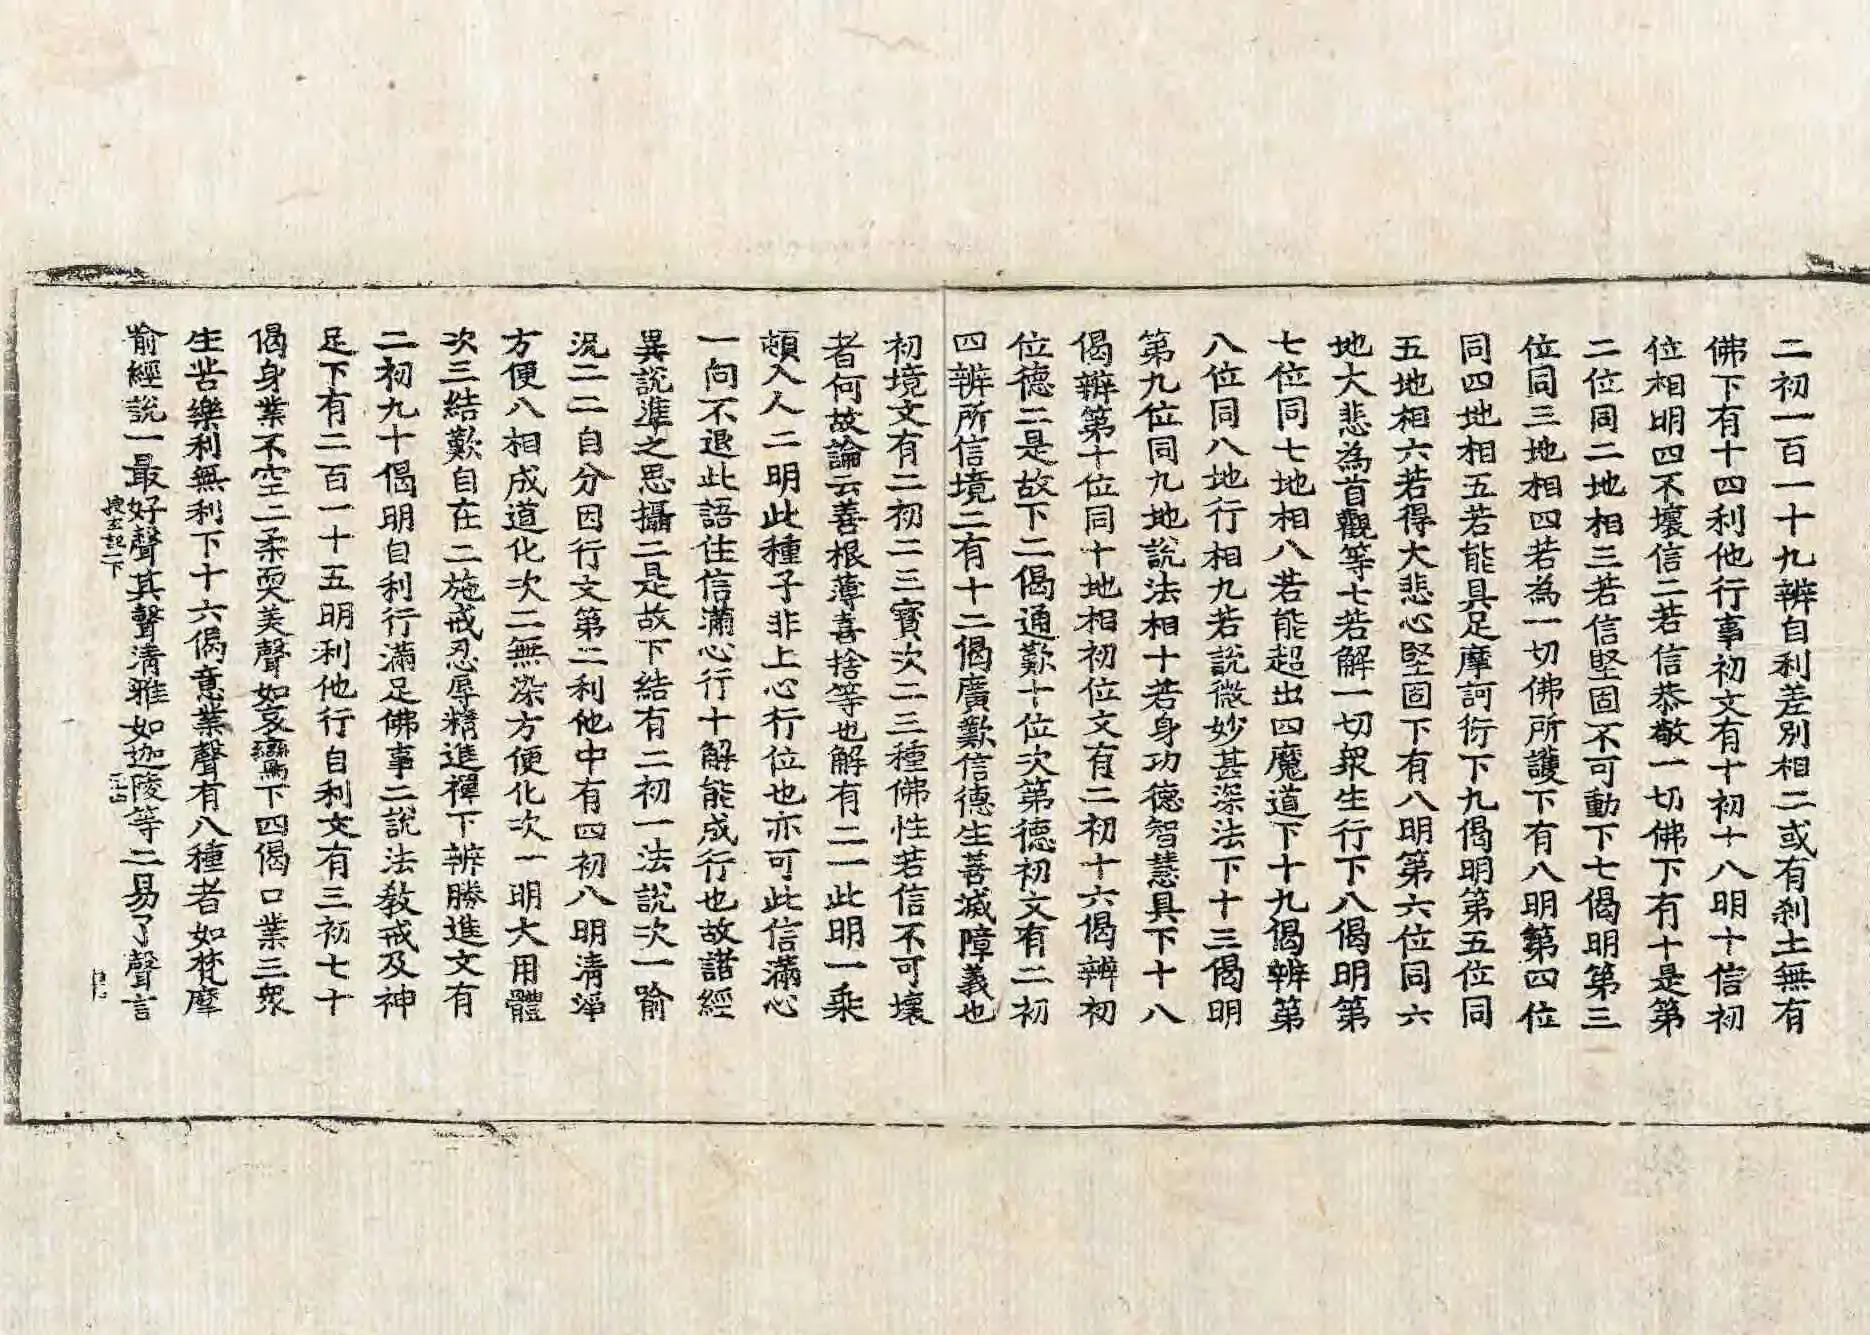 二初一百一十九辨自利差別相二或有刹土無有
佛下有十四利他行事初文有十初十八明十信初
位相明四不壞信二若信恭敬一切佛下有十是第
二位同二地相三若信堅固不可動下七偈明第三
位同三地相四若為一切佛所護下有八明第四位
同四地相五若能具足摩訶衍下九偈明第五位同
五地相六若得大悲心堅固下有八明第六位同六
地大悲為首觀等七若解一切衆生行下八偈明第
七位同七地相八若能超出四魔道下十九偈辨第
八位同八地行相九若說微妙甚深法下十三偈明
第九位同九地說法相十若身功德智慧具下十八
偈辨第十位同十地相初位文有二初十六偈辨初
位德二是故下二偈通歎十位次第德初文有二初
四辨所信境二有十二偈廣歎信德生善滅障義也
初境文有二初二三寶次二三種佛性若信不可壞
者何故論云善根薄喜捨等也解有二一此明一乘
頓入人二明此種子非上心行位也亦可此信滿心
一向不退此語住信滿心行十解能成行也故諸經
異說準之思攝二是故下結有二初一法說次一喻
況二二自分因行文第二利他中有四初八明清淨
方便八相成道化次二無染方便化次一明大用體
次三結歎自在二施戒忍辱精進禪下辨勝進文有
二初九十偈明自利行滿足佛事二說法教戒及神
足下有二百一十五明利他行自利文有三初七十
偈身業不空二柔耎美聲如哀鸞下四偈口業三衆
生苦樂利無利下十六偈意業聲有八種者如梵摩
喻經說一最好聲其聲清雅如迦陵等二易了聲言
搜玄記一下